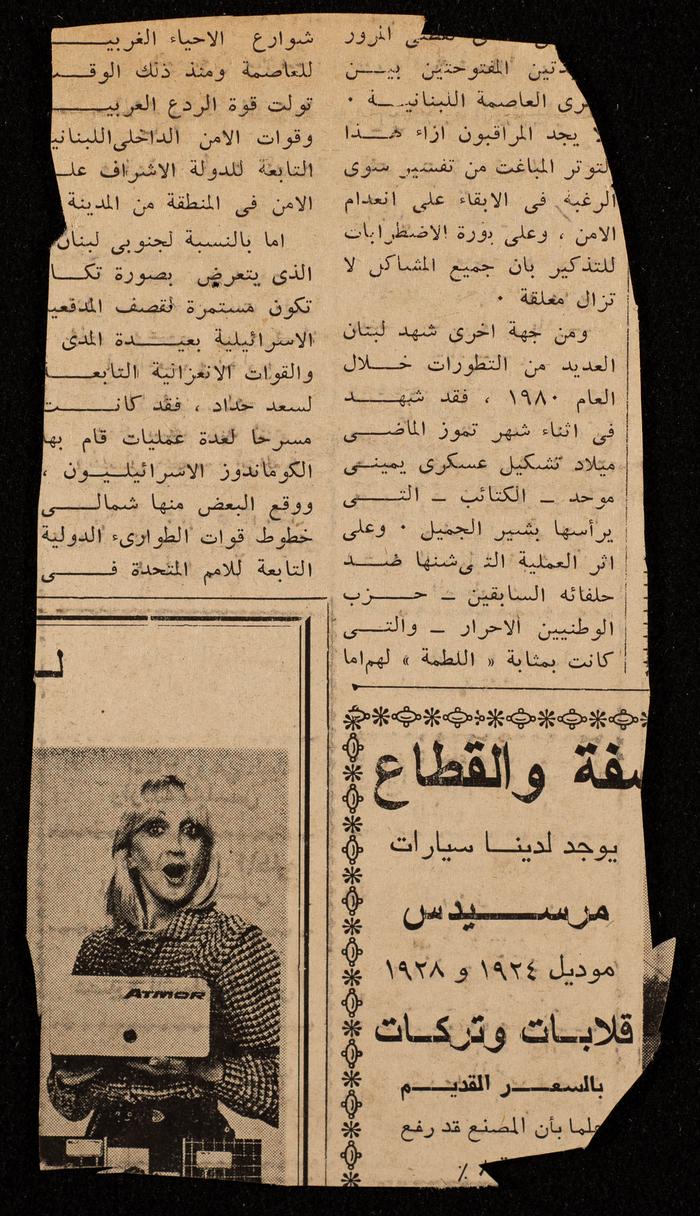 تغطى المرور
المفتوحتين بيــن
العاصمة اللبنانيــة ٠
لا يجد المراقبون ازاء هــذا
التوتر المباغت من تفسير سوى
الرغبة فى الابقاء على انعدام
الامن ، وعلى بؤرة الاضطرابات
للتذكير بان جميع المشاكل لا
تزال معلقة ٠
ومن جهة اخرى شهد لبنان
العديد من التطورات خــلال
العام ١٩٨٠ ، فقد شهــد
فى اثناء شهر تموز الماضــى
ميلاد تشكيل عسكرى يمينــى
موحد ــ الكتائب ــ التــى
يرأسها بشير الجميل ٠ وعلى
اثر العملية التى شنها ضــد
حلفائه السابقين ــ حــزب
الوطنيين الاحرار ــ والتــى
كانت بمثابة « اللطمة » لهم اما
شوارع الاحياء الغربيــــ
للعاصمة ومنذ ذلك الوقــ
تولت قوة الردع العربيــــ
وقوات الامن الداخلى اللبناني
التابعة للدولة الاشراف علــ
الامن فى المنطقة من المدينة
اما بالنسبة لجنوبى لبنان
الذى يتعرض بصورة تكــا
تكون مستمرة لقصف المدفعي
الاسرائيلية بعيــدة المدى
والقوات الانعزالية التابعــ
لسعد حداد ، فقد كانــت
مسرحا لعدة عمليات قام بها
الكوماندوز الاسرائيليــون ،
ووقع البعض منها شمالــى
خطوط قوات الطوارىء الدولية
التابعة للامم المتحدة فــى
سفة والقطاع
يوجد لدينــا سيارات
مرســيدس
موديل ١٩٢٤ و ١٩٢٨
قلابــات وتركــات
بالسعــر القديــم
علما بأن المصنع قد رفع
٪
لــ
ATMOR